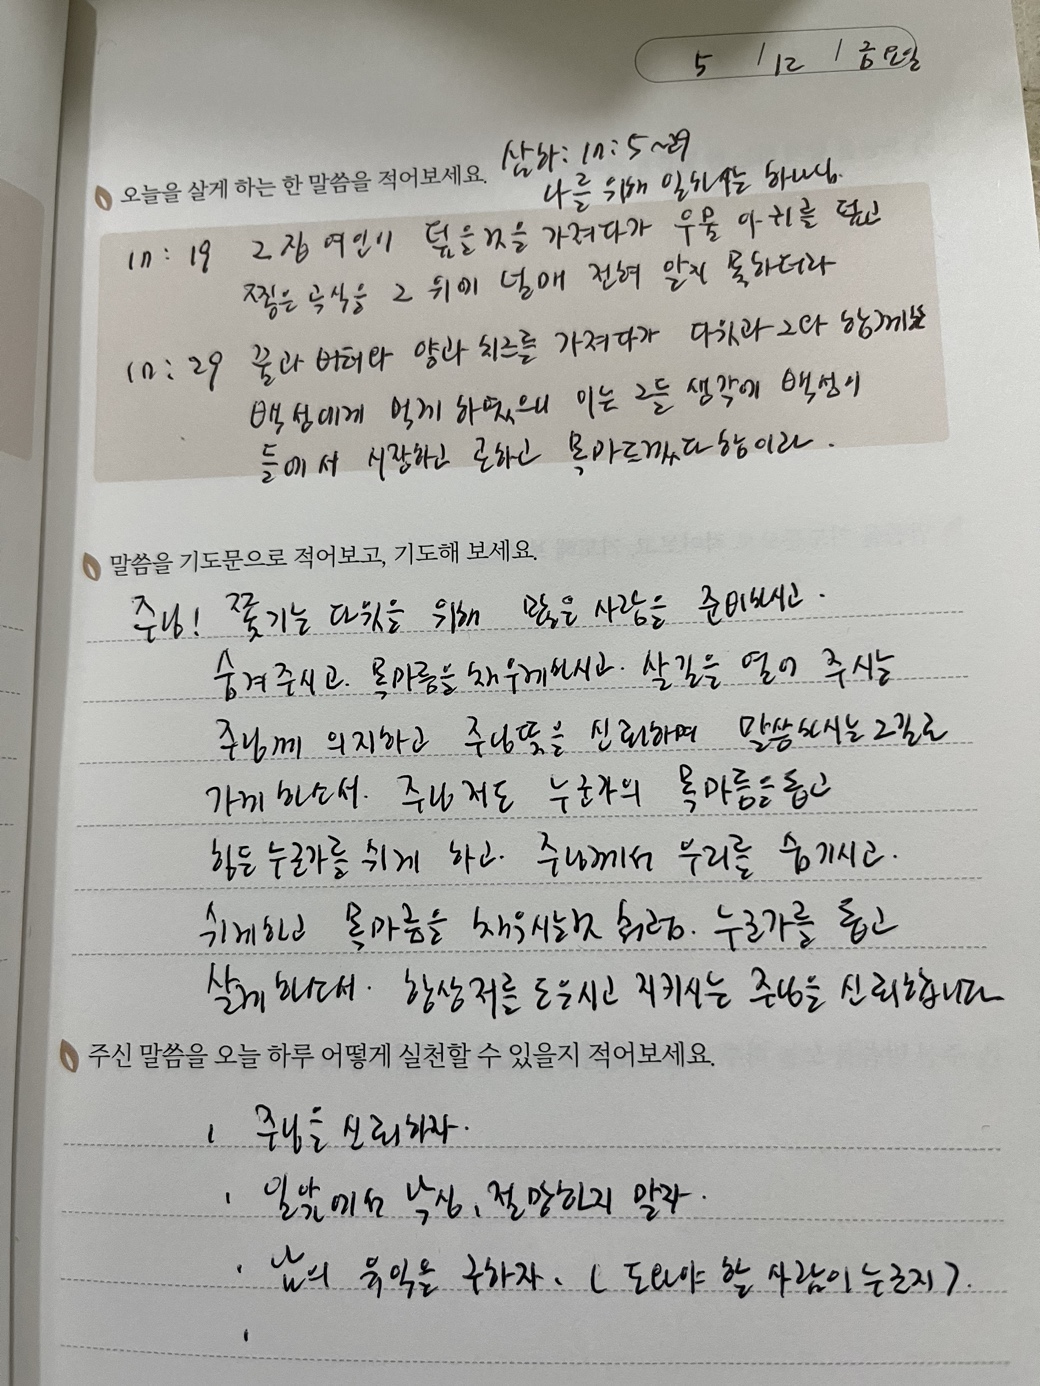 5 / 12 / 금요일
삼하: 17: 5~29
오늘을 살게 하는 한 말씀을 적어보세요.
나를 위해 일하시는 하나님.
17: 19 그 집 여인이 덮을것을 가져다가 우물 아귀를 덮고
찧은 곡식을 그 위에 널매 전혀 알지 못하더라
17: 29 꿀과 버터와 양과 치즈를 가져다가 다윗과 그와 함께한
백성에게 먹게 하였으니 이는 그들 생각에 백성이
들에서 시장하고 곤하고 목마르겠다 함이라.
말씀을 기도문으로 적어보고, 기도해 보세요.
주님! 쫓기는 다윗을 위해 많은 사람을 준비하시고.
숨겨주시고. 목마름을 채우게하시고. 살길을 열어 주시는
주님께 의지하고 주님뜻을 신뢰하며 말씀하시는 그길로
가게 하소서. 주님 저도 누군가의 목마름을 돕고
힘든 누군가를 쉬게 하고. 주님께서 우리를 숨기시고.
쉬게하고 목마름을 채우시는것 처럼. 누군가를 돕고
살게 하소서. 항상 저를 도우시고 지키시는 주님을 신뢰합니다
주신 말씀을 오늘 하루 어떻게 실천할 수 있을지 적어보세요.
주님을 신뢰하자.
일앞에서 낙심, 절망하지 말라.
남의 유익을 구하자. ( 도와야 할 사람이 누군지 ).